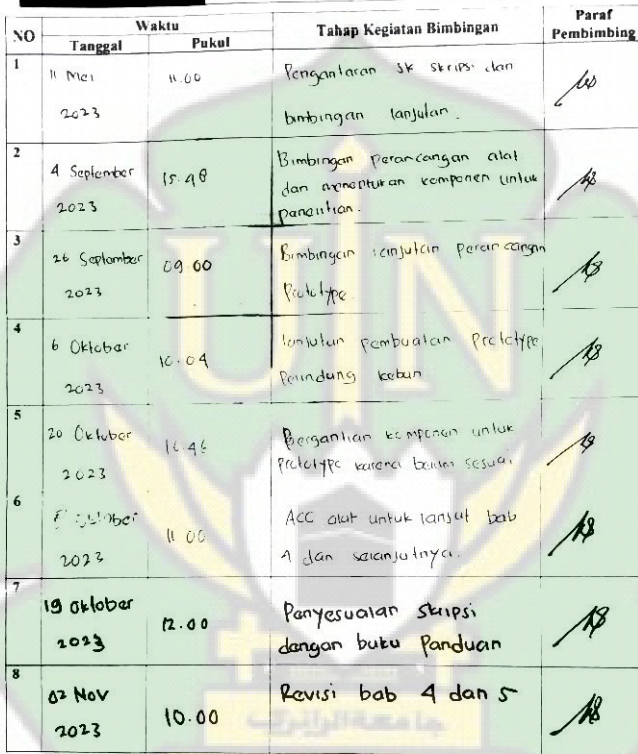 NO Waktu Tahap Kegiatan Bimbingan Paraf Pembimbing
Tanggal Pukul
1 11 Mei 2023 11.00 Pengantaran SK skripsi dan
bimbingan lanjutan.
2 4 September 2023 15.48 Bimbingan perancangan alat
dan menentukan komponen untuk
penelitian.
3 26 September 2023 09.00 Bimbingan lanjutan perancangan
Prototype.
4 6 Oktober 2023 10.04 lanjutan pembuatan Prototype
Pelindung kebun
5 20 Oktober 2023 16.46 Pergantian komponen untuk
Prototype karena belum sesuai
6 Oktober 2023 11.00 ACC alat untuk lanjut bab
4 dan selanjutnya.
7 19 Oktober 2023 12.00 Penyesuaian skripsi
dengan buku Panduan
8 02 Nov 2023 10.00 Revisi bab 4 dan 5
UIN
جامعة الرانيري